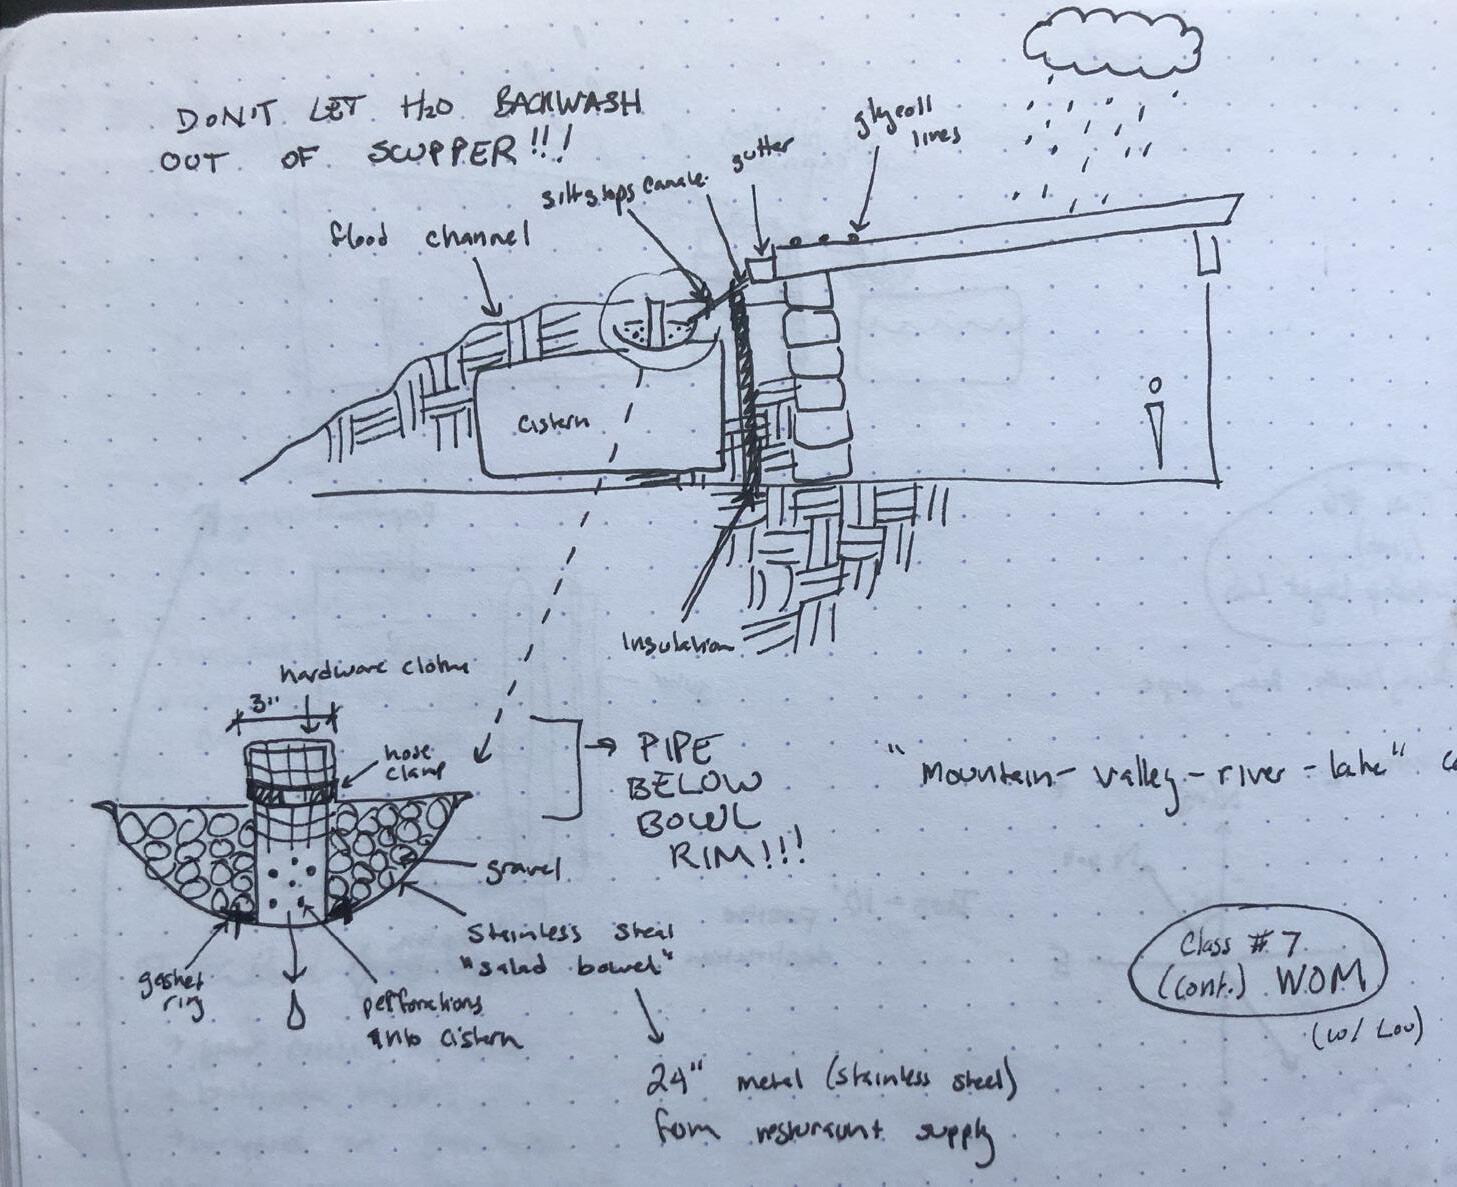 DON'T LET H2O BACKWASH
OUT OF SCUPPER!!!
flood channel
silt stops
canale
gutter
glycoll
lines
cistern
Insulation
hardware clothe
3"
hose
clamp
PIPE
BELOW
BOWL
RIM!!!
"Mountain - valley - river - lake"
gravel
stainless steal
"salad bowel"
gasket
ring
perforactions
into cistern
24" metal (stainless steel)
from resturaunt supply
Class #7
(cont.) WOM
(w/ Lou)